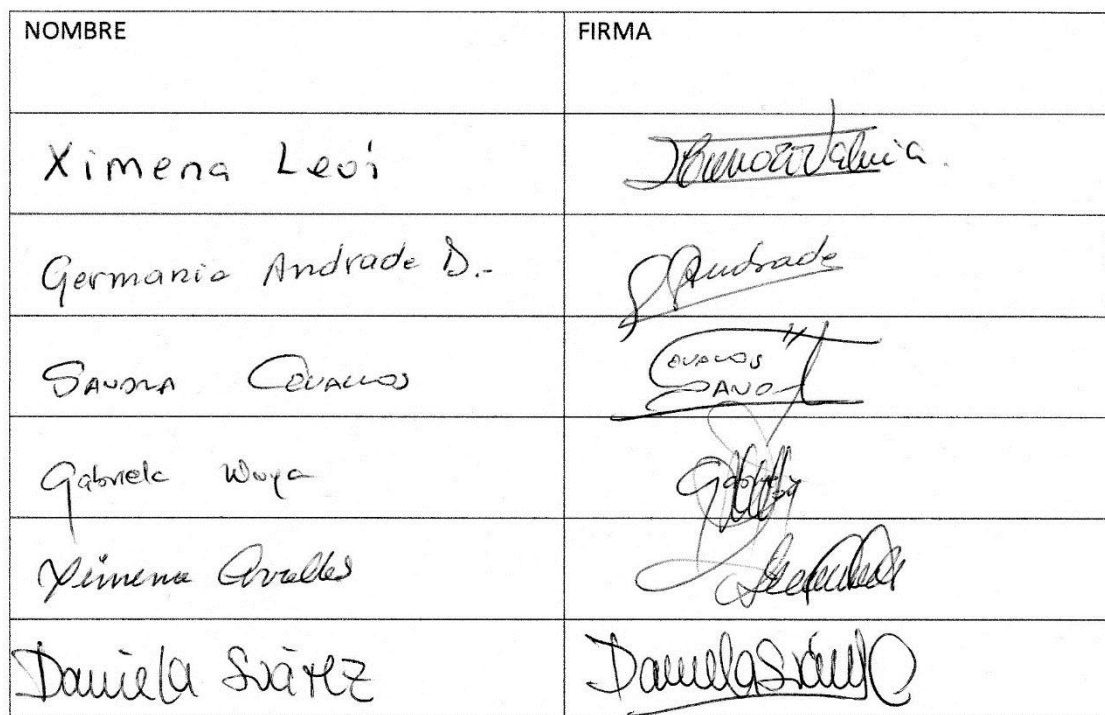 NOMBRE FIRMA
Ximena Levi
Germania Andrade D.- Andrade
SANDRA CEVALLOS CEVALLOS SAND
Gabriela
Ximena
Daniela Suárez Daniela Suárez